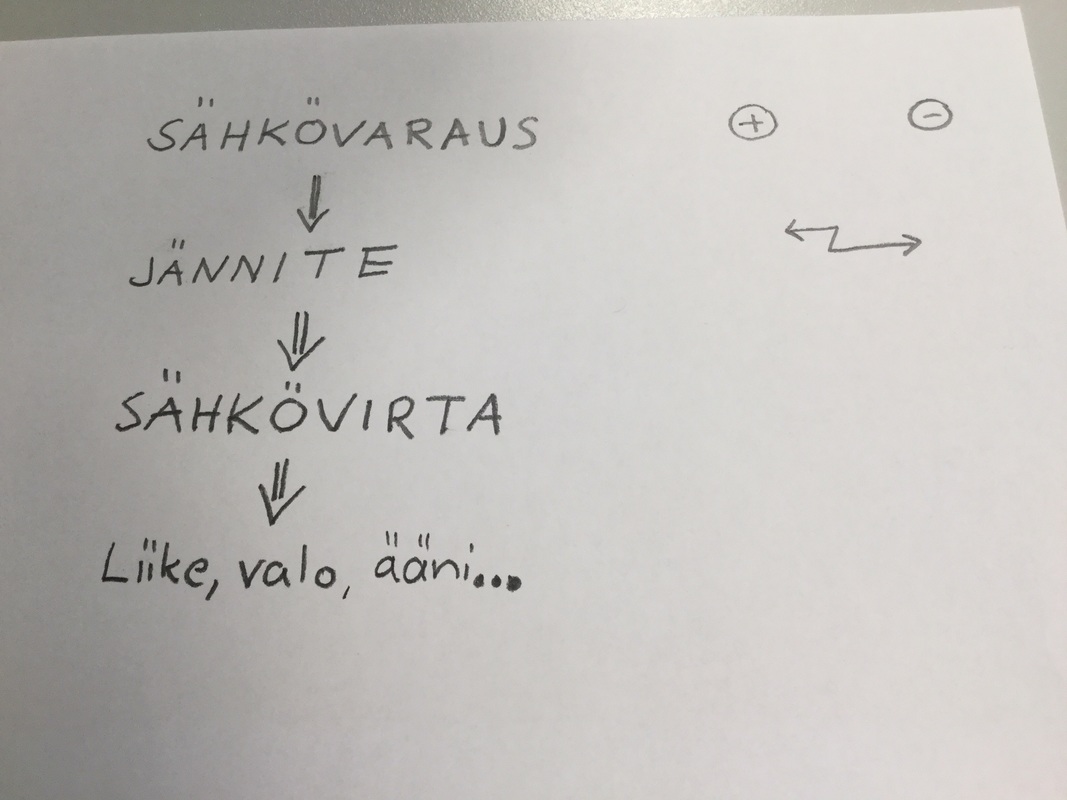 SÄHKÖVARAUS + −
JÄNNITE
SÄHKÖVIRTA
Liike, valo, ääni...